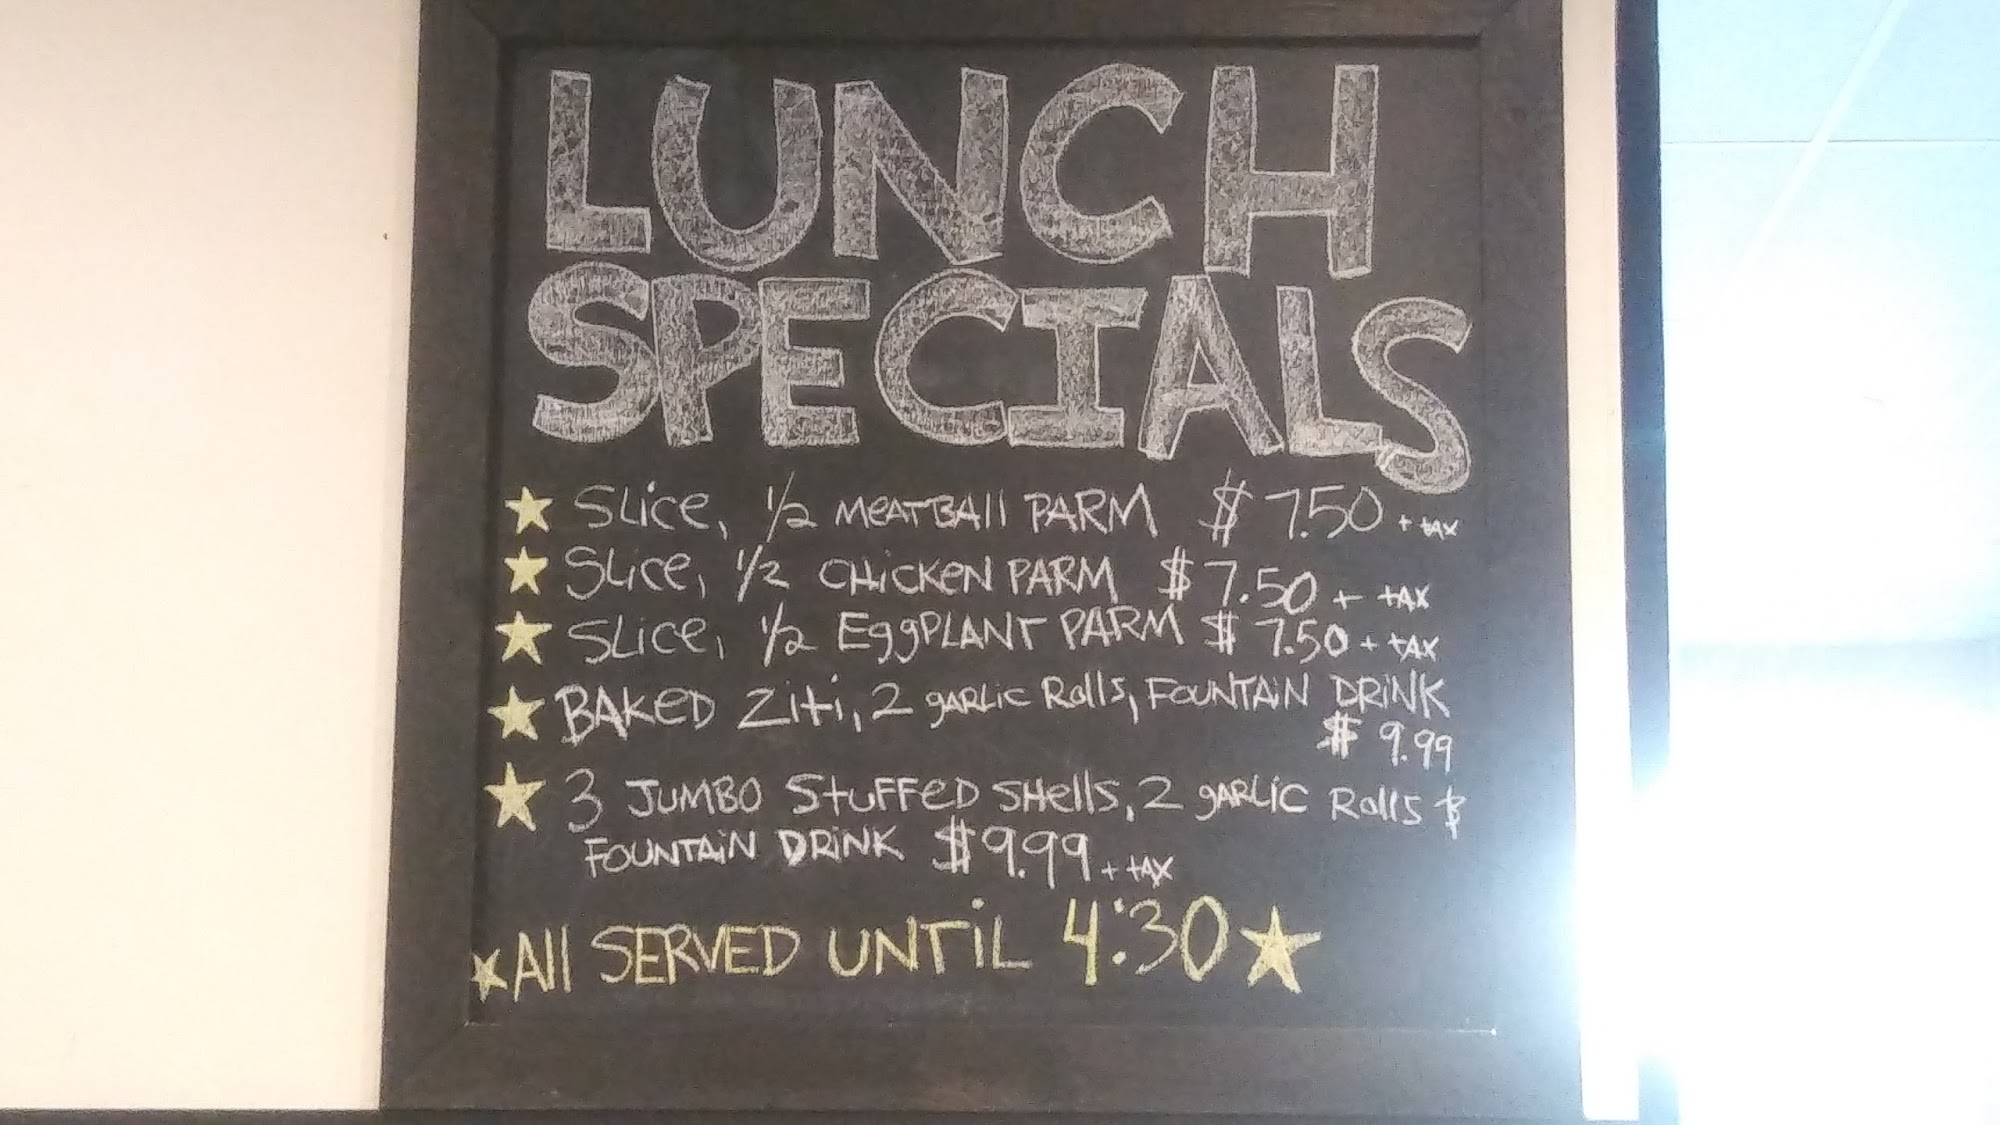 LUNCH
SPECIALS
★ Slice, 1/2 MeATBAll PARM $7.50 + tax
★ Slice, 1/2 CHicKeN PARM $7.50 + tAX
★ Slice, 1/2 EggPLANT PARM $7.50 + tAX
★ BAKeD Ziti, 2 gARLic Rolls, FOUNTAiN DRiNK
$9.99
★ 3 JUMBO StuFFeD SHells, 2 gARLic Rolls &
FOUNTAiN DRiNK $9.99 + tAX
★ All SERVED UNTiL 4:30 ★